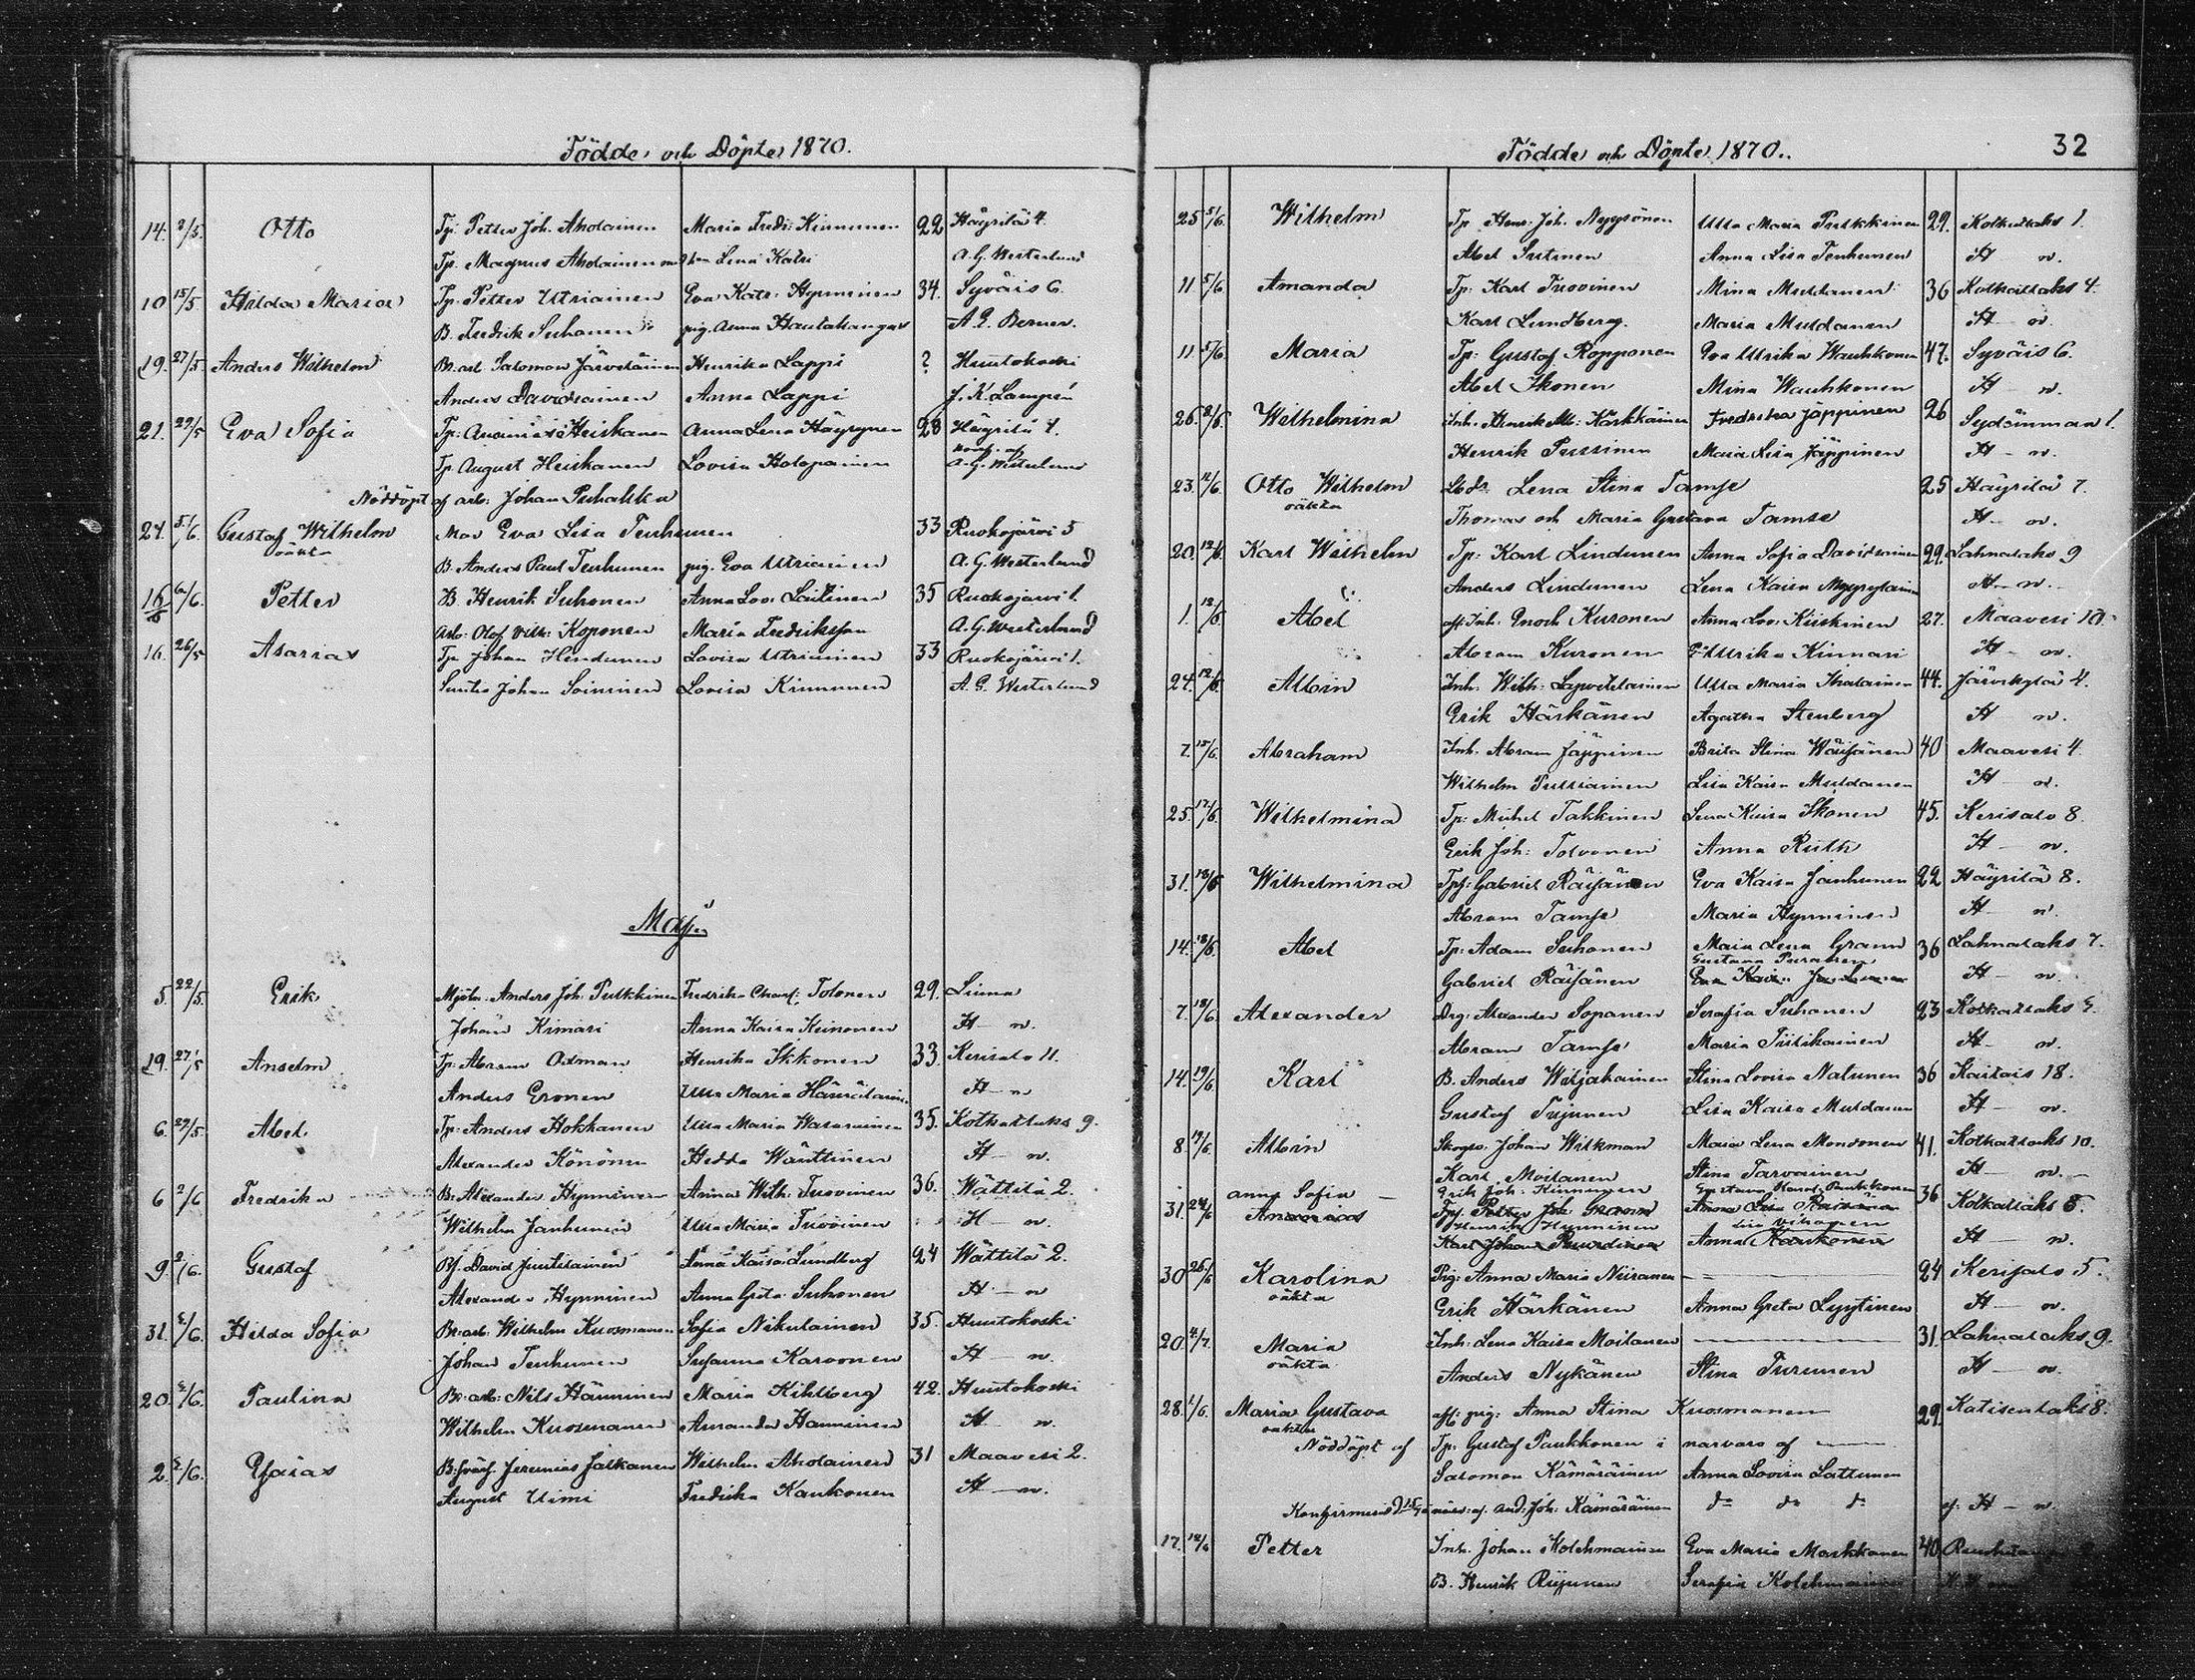 Födde och Döpte 1870.
14. 8/5. Otto Tp. Petter Joh. Aholainen Maria Fredr: Kinnunen 22 Häyrilä 4.
Tp. Magnus Aholainen Lena Katri A. G. Westerlund
10 15/5. Hilda Maria Tp. Petter Utriainen Eva Katr: Hynninen 34. Syväis 6.
B. Fredrik Suhonen pig. Anna Hautakangas A. G. Berner.
19. 27/5 Anders Wilhelm Br. arb. Salomon Järveläinen Henrika Lappi ? Huutokoski
Anders Davidsainen Anna Lappi J. K. Lampén
21. 29/5 Eva Sofia Tp: Ananias Heiskanen Anna Lena Häyrynen 28 Häyrilä 7.
Tp. August Heiskanen Lovisa Holopainen konf. af A. G. Westerlund
Nöddöpt af arb: Johan Puhakka
24. 5/6. Gustaf Wilhelm oäkta Eva Lisa Tenhunen 33 Ruokojärvi 5
B. Anders Paul Tenhunen pig. Eva Utriainen A. G. Westerlund
16/5 6/6. Petter B. Henrik Suhonen Anna Lov: Laitinen 35 Ruokojärvi 1.
Arb: Olof Vilh: Koponen Maria Fredriksson A. G. Westerlund
16. 26/5 Asarias Tp Johan Hendunen Lovisa Utriainen 33 Ruokojärvi 1.
Johan Soininen Lovisa Kinnunen A. G. Westerlund
Maji
5. 22/5. Erik Mjöln. Anders Joh. Pulkkinen Fredrika Charl: Tolonen 29. Liuna
Johan Kimari Anna Kaisa Keinonen H— n.
19. 27/5 Anselm Tp. Abram Odman Henrika Ikkonen 33. Kerisalo 11.
Anders Eronen Ulla Maria H— n
6. 29/5. Abel Tp: Anders Hokkanen Ulla Maria 35. Kotkatlaks 9.
Alexander Könönen Hedda Wänttinen H— n.
6 2/6 Fredrika B: Alexander Hynninen Anna Wilh: Tuovinen 36. Wättilä 2.
Wilhelm Janhunen Ulla Maria Tuovinen H— n.
9. 2/6. Gustaf Bf. David Juutilainen Anna Kaisa Sundberg 24 Wättilä 2.
Alexander Hynninen Anna Greta Suhonen H— n
31. 5/6. Hilda Sofia Br: arb: Wilhelm Kuosmanen Sofia Nikulainen 35. Huutokoski
Johan Tenhunen Susanna Karvonen H— n.
20. 5/6. Paulina Br: arb: Nils Hänninen Maria Kihlberg 42. Huutokoski
Wilhelm Kuosmanen Amanda Hänninen H— n.
2. 5/6. Esaias Jeremias Jalkanen Wilhelm: Aholainen 31 Maavesi 2.
August Uimi Fredrika Kaukonen H— n.
Födde och Döpte 1870. 32
25 5/6. Wilhelm Tp Henr: Joh. Nyyssönen Ulla Maria Pulkkinen 29. Kotkatlaks 1.
Abel Sutinen Anna Lisa Tenhunen H n.
11 5/6. Amanda Tp: Karl Tuovinen Mina Muldanen 36 Kotkatlaks 4.
Karl Lundberg. Maria Muldanen H— n.
11 5/6. Maria Tp: Gustaf Ropponen Eva Ulrika Wauhkonen 47. Syväis 6.
Abel Ikonen Mina Wauhkonen H— n.
26. 8/6. Wilhelmina Inh. Henrik Kärkkäinen Fredrika Jäppinen 26 Sydänmaa 1.
Henrik Pussinen Maria Lisa Jäppinen H— n.
23. 11/6. Otto Wilhelm oäkta Lena Stina Tamse 25 Häyrilä 7.
Thomas och Maria Gustava Tamse H— n.
20. 12/6. Karl Wilhelm Tp: Karl Lindunen Anna Sofia Davidsainen 29. Lahnalaks 9
Anders Lindunen Lena Kaisa H— n.
1. 12/6. Abel Inh: Enoch Kuronen Anna Lov: Kiiskinen 27. Maavesi 10.
Abram Kuronen Ulrika Kinnari H— n.
24. 12/6. Albin Inh: Wilh: Lapveteläinen Ulla Maria Ihalainen 44. Järvikylä 4.
Erik Härkänen Agatha Stenberg H n.
7. 15/6. Abraham Inh. Abram Jäppinen Brita Stina Wäisänen 40 Maavesi 4.
Wilhelm Pussiainen Lisa Kaisa Muldanen H— n.
25. 17/6. Wilhelmina Tp: Michel Takkinen Lena Kaisa Ikonen 45. Kerisalo 8.
Erik Joh: Tolvanen Anna Ruth H— n.
31. 18/6 Wilhelmina Gabriel Räisänen Eva Kaisa Janhunen 22 Häyrilä 8.
Abram Tamse Maria Hynninen H— n.
14. 18/6. Abel Tp: Adam Suhonen Maia Lena Grann 36 Lahnalaks 7.
Gabriel Räisänen Gustava Eva Kaisa Janhunen H— n.
7. 18/6. Alexander Drg: Alexander Sopanen Serafia Suhonen 23 Kotkatlaks
Abram Tamse Maria Tiitikainen H— n.
14. 19/6 Karl B. Anders Wiljakainen Stina Lovisa Natunen 36 Kaitais 18.
Gustaf Tujunen Lisa Kaisa Muldanen H— n.
8. 19/6. Albin Johan Wilkman Maria Lena Mononen 41. Kotkatlaks 10.
Karl Moilanen Stina Tarvainen H— n.
31. 24/6 Anna Sofia Ananias Erik Joh. Kinnunen Petter Joh Grann Gustava Paukkonen Anna Lisa 36 Kotkatlaks 5.
Henrik Hynninen Karl Johan Lisa Vihanen Anna Kaukonen H— n.
30 26/6 Karolina oäkta Pig: Anna Maria Niiranen —— 24 Kerisalo 5.
Erik Härkänen Anna Greta Lyytinen H— n.
20. 4/7. Maria oäkta Inh: Lena Kaisa Moilanen —— 31. Lahnalaks 9.
Anders Nykänen Stina Turunen H— n.
28. 1/6. Maria Gustava oäkta afl: pig: Anna Stina Kuosmanen 29. Katisenlaks 8.
Nöddöpt af Tp: Gustaf Paukkonen i narvaro af ——
Salomon Kämäräinen Anna Lovisa Lattunen
Konfirmerad af And: Joh: Kämäräinen do do do af H— n.
17. 19/6 Petter Inh. Johan Kolehmainen Eva Maria Markkanen 40
B. Henrik Riipinen Serafia Kolehmainen